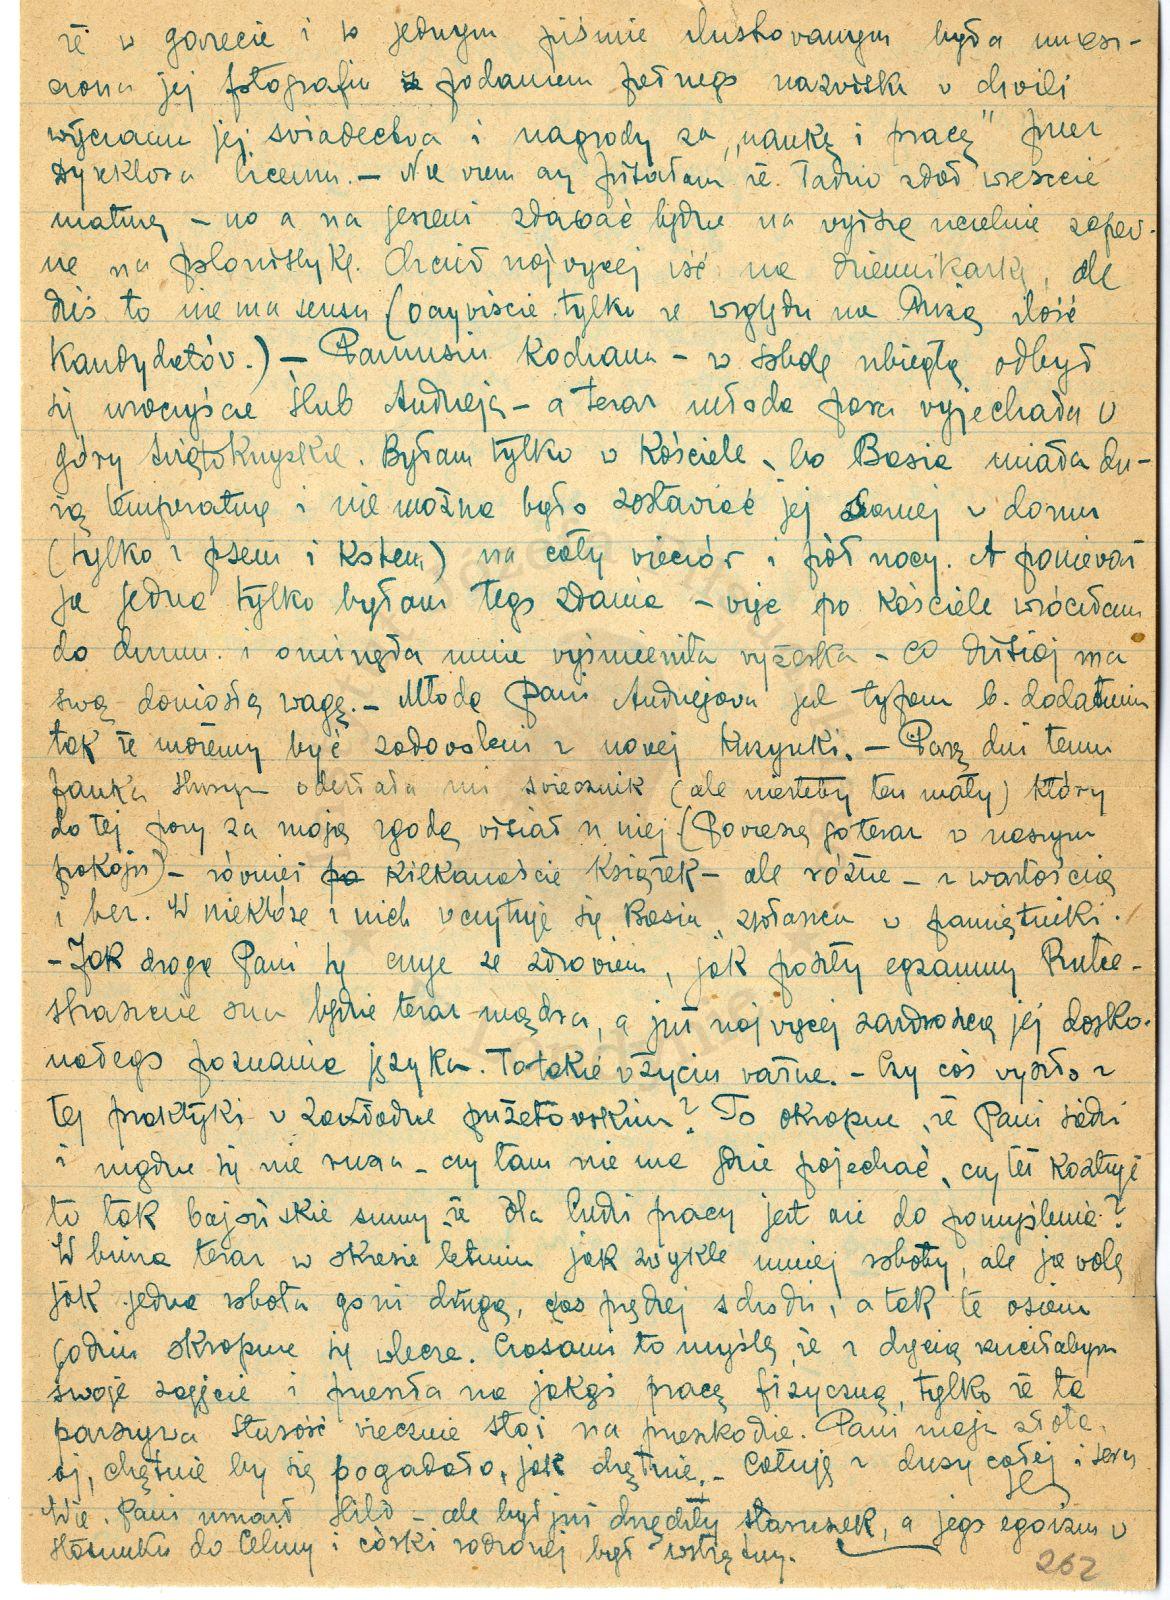 że w gazecie i w jednym piśmie ilustrowanym była umiesz-
czona jej fotografia z podaniem pełnego nazwiska w chwili
wręczania jej świadectwa i nagrody za „naukę i pracę" przez
dyrektora liceum. — Nie wiem czy pisałam że Tadzio zdał wreszcie
maturę — no a na jesieni zdawać będzie na wyższą uczelnię zapew-
ne na polonistykę. Chciał najwięcej iść na dziennikarkę, ale
dziś to nie ma sensu (oczywiście tylko ze względu na dużą ilość
kandydatów.) — Pamusiu kochana — w sobotę ubiegłą odbył
się uroczyście ślub Andrzeja — a teraz młoda para wyjechała w
góry świętokrzyskie. Byłam tylko w kościele, bo Basia miała du-
żą temperaturę i nie można było zostawiać jej samej w domu
(tylko z psem i kotem) na cały wieczór i pół nocy. A ponieważ
ja jedna tylko byłam tego zdania — więc po kościele wróciłam
do domu i ominęła mnie wyśmienita wyżerka — co dzisiaj ma
swą doniosłą wagę. — Młoda Pani Andrzejowa jest typem b. dodatnim
tak że możemy być zadowoleni z nowej kuzynki. — Parę dni temu
Janka odesłała mi świecznik (ale niestety ten mały) który
do tej pory za moją zgodą wisiał u niej (Powieszę go teraz w naszym
pokoju) — również kilkanaście książek — ale różne — z wartością
i bez. W niektóre z nich wczytuje się Basia, zwłaszcza w pamiętniki.
— Jak droga Pani się czuje ze zdrowiem, jak poszły egzaminy Rutce —
strasznie ona będzie teraz mądra, a już najwięcej zazdroszczę jej dosko-
nałego poznania języka. To takie w życiu ważne. — Czy coś wyszło z
tej praktyki w zakładzie ? To okropne, że Pani siedzi
i nigdzie się nie rusza — czy tam nie ma gdzie pojechać, czy też kosztuje
to tak bajońskie sumy że dla ludzi pracy jest nie do pomyślenia?
W biurze teraz w okresie letnim jak zwykle mniej roboty, ale ja wolę
jak jedna robota goni drugą, czas prędzej schodzi, a tak te osiem
godzin okropnie się wlecze. Czasami to myślę, że z chęcią rzuciłabym
swoje zajęcie i przeszła na jakąś pracę fizyczną, tylko że ta
parszywa starość wiecznie stoi na przeszkodzie. Pani moja złota,
oj, chętnie by się pogadało, jak chętnie. — Całuję z duszy całej i serca
Wie Pani umarł Hild — ale był już staruszek, a jego egoizm w
stosunku do Celiny i córki rodzonej był wstrętny.
262